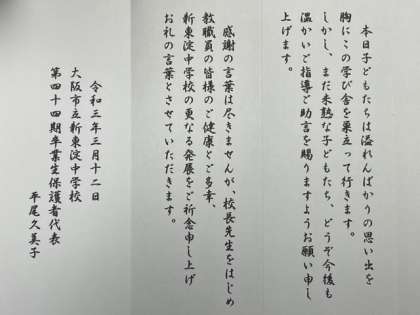 本日子どもたちは溢れんばかりの思い出を
胸にこの学び舎を巣立って行きます。
しかし、まだ未熟な子どもたち、どうぞ今後も
温かいご指導ご助言を賜りますようお願い申し
上げます。
感謝の言葉は尽きませんが、校長先生をはじめ
教職員の皆様のご健康とご多幸、
新東淀中学校の更なる発展をご祈念申し上げ
お礼の言葉とさせていただきます。
令和三年三月十二日
大阪市立新東淀中学校
第四十四期卒業生保護者代表
平尾久美子